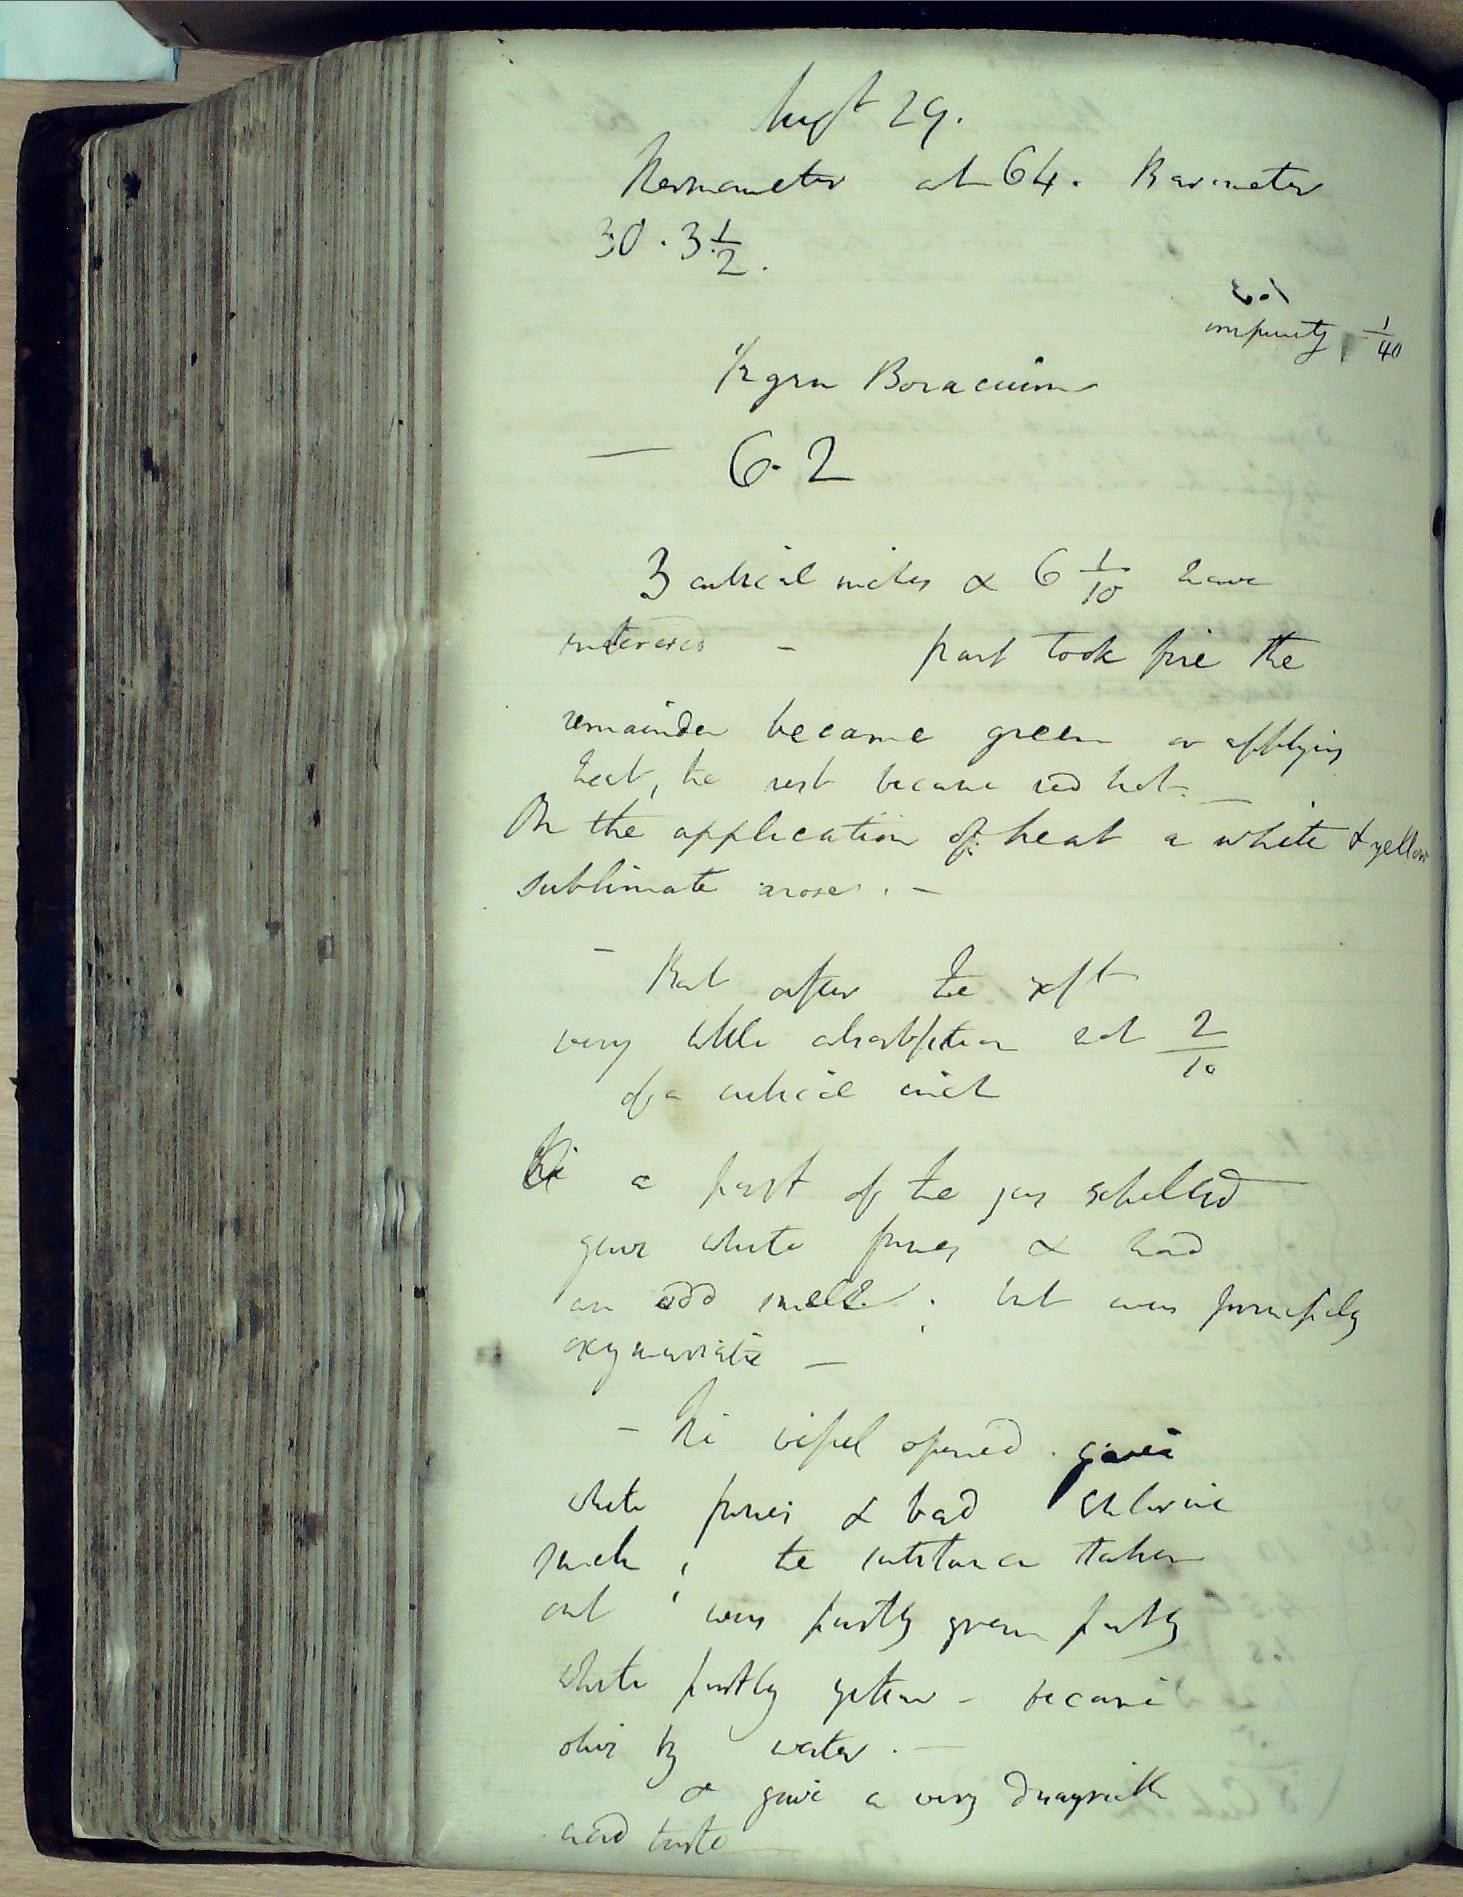 Augst 29.
Thermometer at 64. Barometer
30 . 3 1/2.
not
impurity 1/40
1/2 grn Boracium
— 6.2
3 cubical inches & 6 1/10 have
entered — part took fire the
remainder became green on applying
heat, the rest became red hot. —
On the application of heat a white & yellow
sublimate arose. —
— But after the expt
very little absorbtion not 2/10
of a cubical inch
The a part of the gas expelled
gave white fumes & had
an odd smell; but was principaly
oxymuriatic —
— The vessel opened. gave
white fumes & had chlorine
smell; the substance taken
out; was partly green partly
white partly yellow — became
olive by water. —
& gave a very disagreeable
acid taste